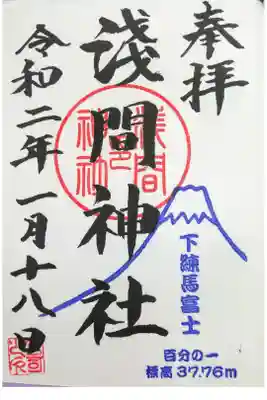 奉拝
淺間神社
令和二年一月十八日
下練馬富士
百分の一
標高37.76m